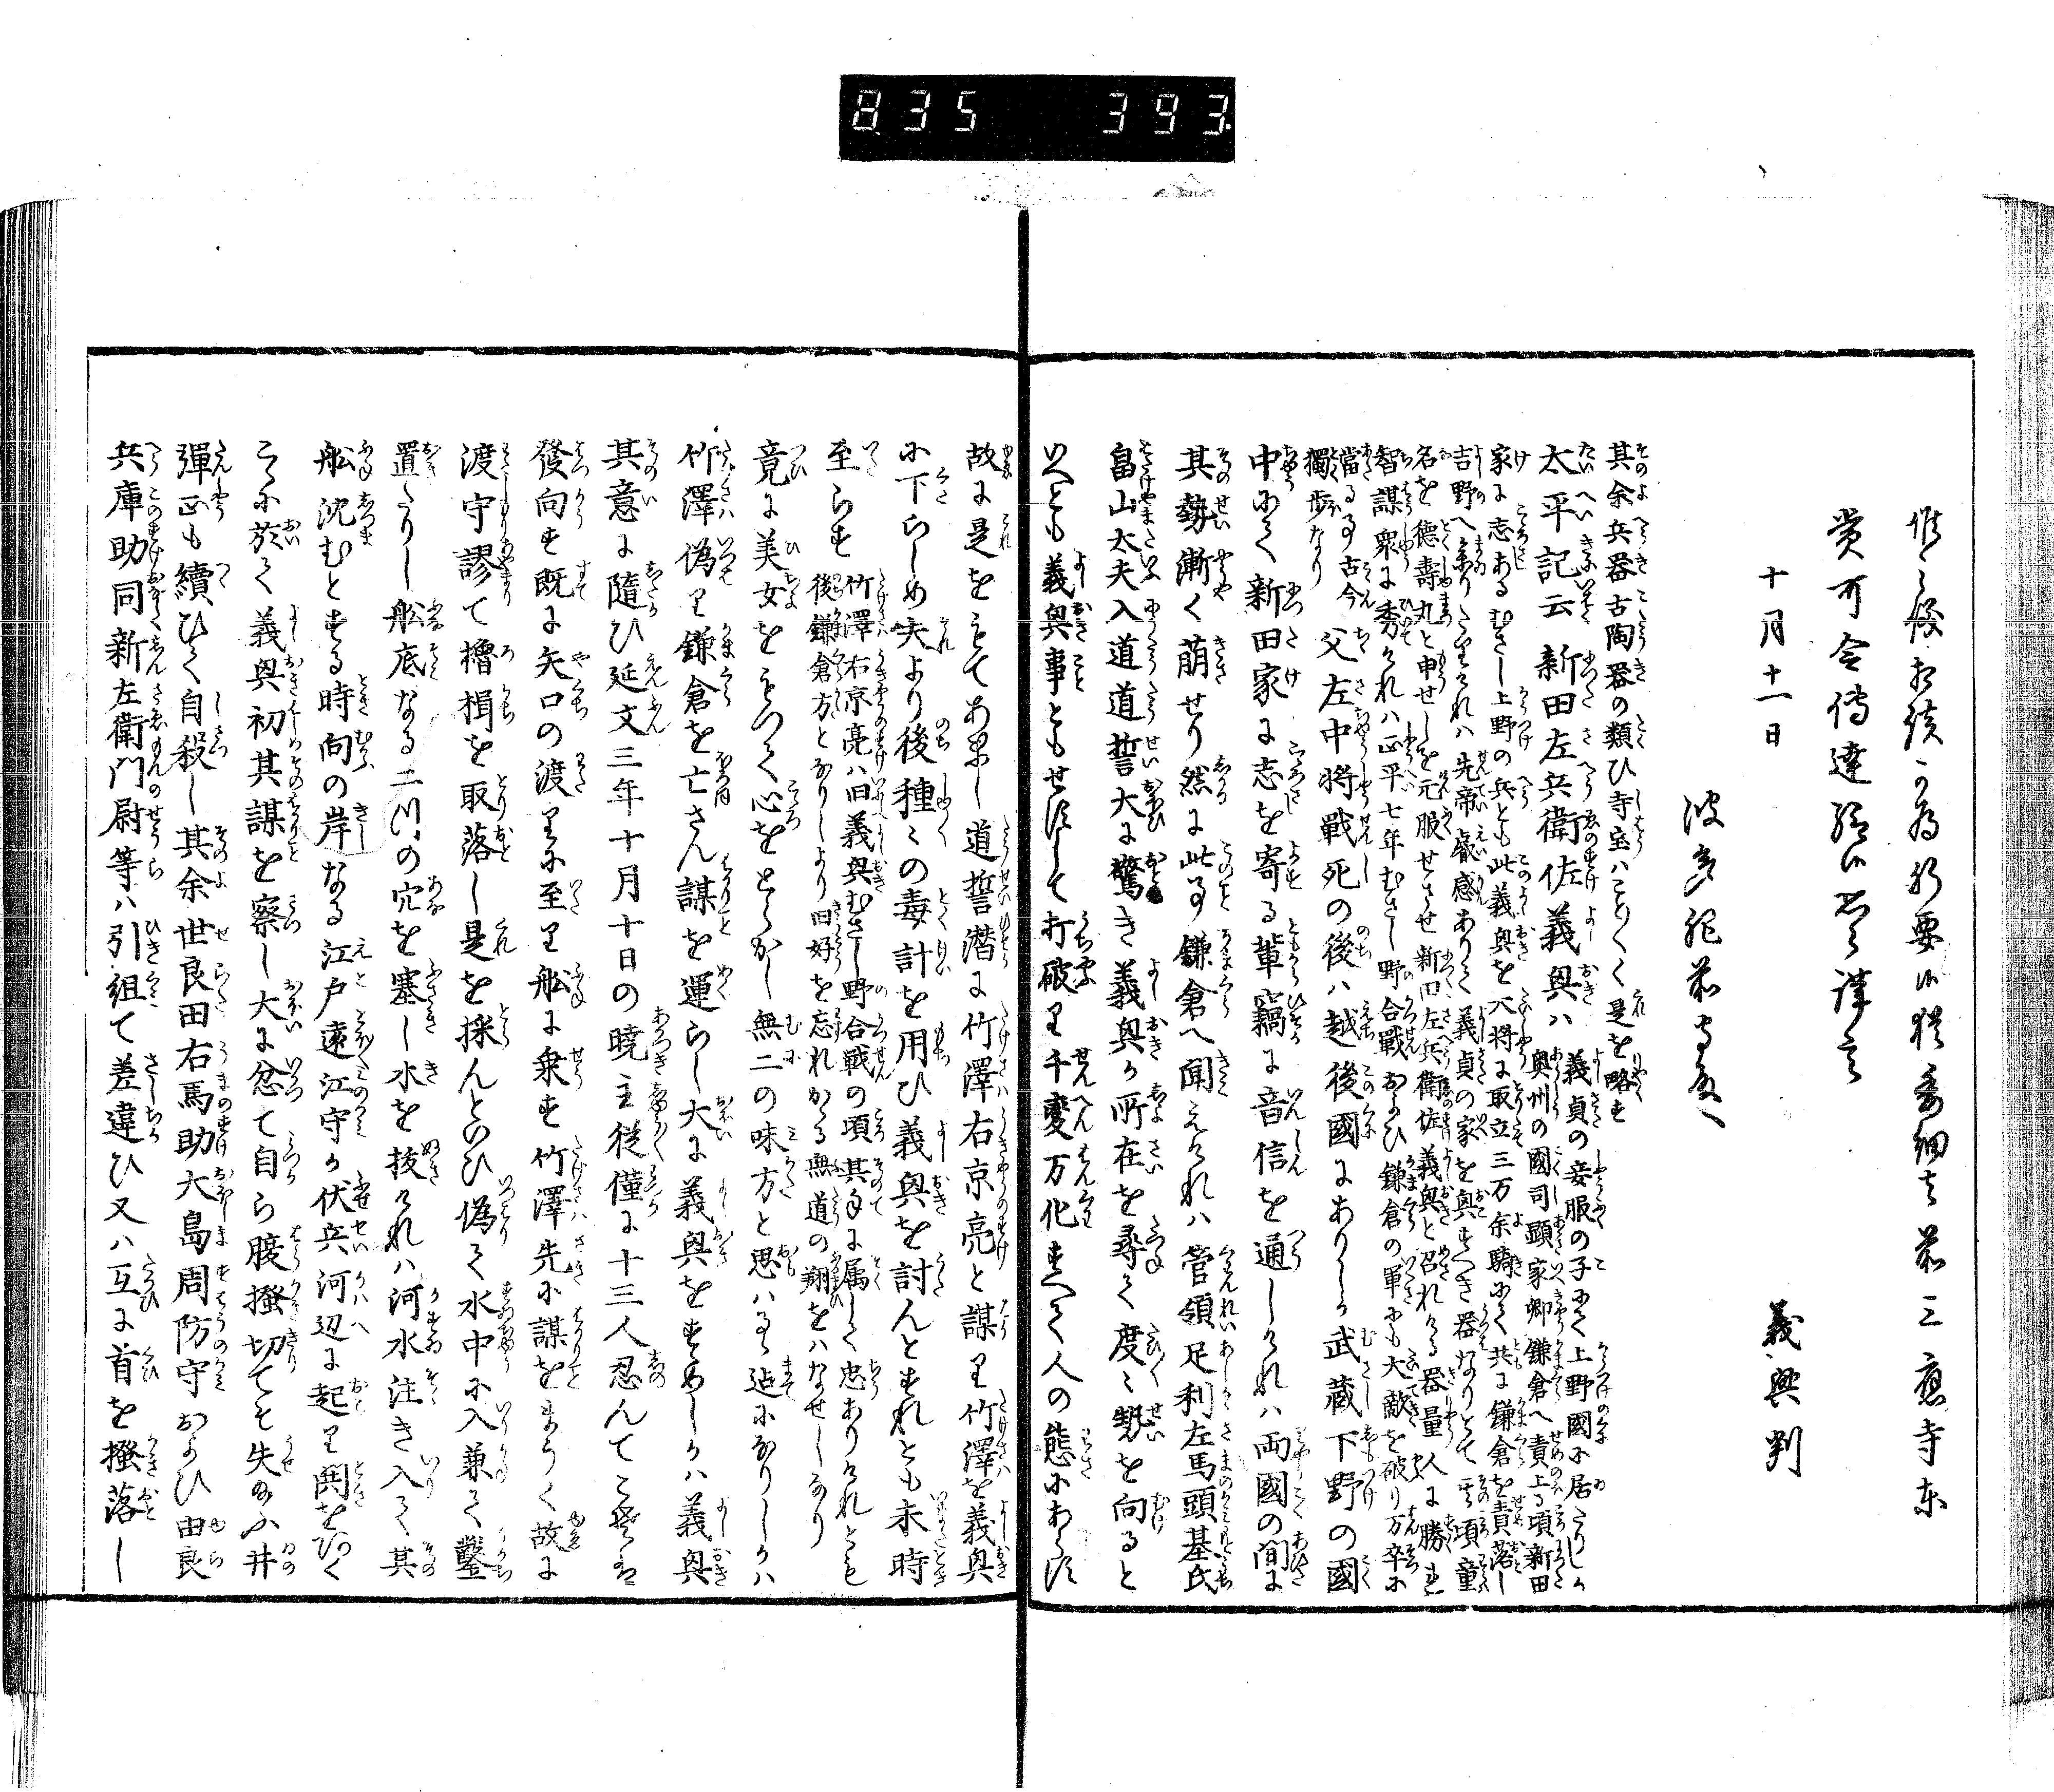 835 393
惟之條相續可為肝要候猶委細者前三應寺東
賞可令傳達給候恐々謹言
十月十一日
義興判
波多野前守殿へ
其余兵器古陶器の類ひ寺宝ハこと〴〵く是を略す
太平記云新田左兵衛佐義興ハ義貞の妾服の子にて上野國に居たりしか
奥州の國司顕家卿鎌倉へ責上る頃新田
家に志あるむさし上野の兵とも此義興を大将に取立三万余騎にて共に鎌倉を責落し
吉野へ参りたりけれハ先帝叡感ありて義貞の家を興すへき器なりとて其項童
名を徳壽丸と申せしを元服せさせ新田左兵衛佐義興と召れける器量人に勝れ
智謀衆に秀けれハ正平七年むさし野合戰および鎌倉の軍にも大敵を破り万卒に
當る事古今
獨歩なり
父左中将戰死の後ハ越後國にありしか武蔵下野の國
中にて新田家に志を寄る輩竊に音信を通しけれハ両國の間に
其勢漸く萠せり然に此事鎌倉へ聞えけれハ管領足利左馬頭基氏
畠山太夫入道道誓大に驚き義興か所在を尋て度々勢を向ると
いへとも義興事ともせすして打破り千變万化すへて人の態にあらす
故に是をもてあまし道誓潜に竹澤右京亮と謀り竹澤を義興
に下らしめ夫より後種々の毒計を用ひ義興を討んとすれとも未時
至らす竹澤右京亮ハ旧義興むさし野合戦の項其手に属して忠ありけれとも
後鎌倉方となりしより旧好を忘れかゝる無道の翔をハなせしなり
竟に美女をもつて心をとらかし無二の味方と思ハる迠になりしかハ
竹澤偽りて鎌倉を亡さん謀を運らし大に義興をすゝめしかハ義興
其意に隨ひ延文三年十月十日の暁主従僅に十三人忍んてこそ
發向す既に矢口の渡りに至り舩に乗す竹澤先に謀をまうく故に
渡守謬て櫓楫を取落し是を採んといひ偽て水中に入兼て鑿
置たりし舩底なる二ツの穴を塞し水を抜けれハ河水注き入て其
舩沈むとする時向の岸なる江戸遠江守か伏兵河辺に起り鬨をつく
こゝに於て義興初其謀を察し大に忿て自ら腹掻切てそ失給ふ井
彈正も續ひて自殺し其余世良田右馬助大島周防守および由良
兵庫助同新左衛門尉等ハ引組て差違ひ又ハ互に首を掻落し